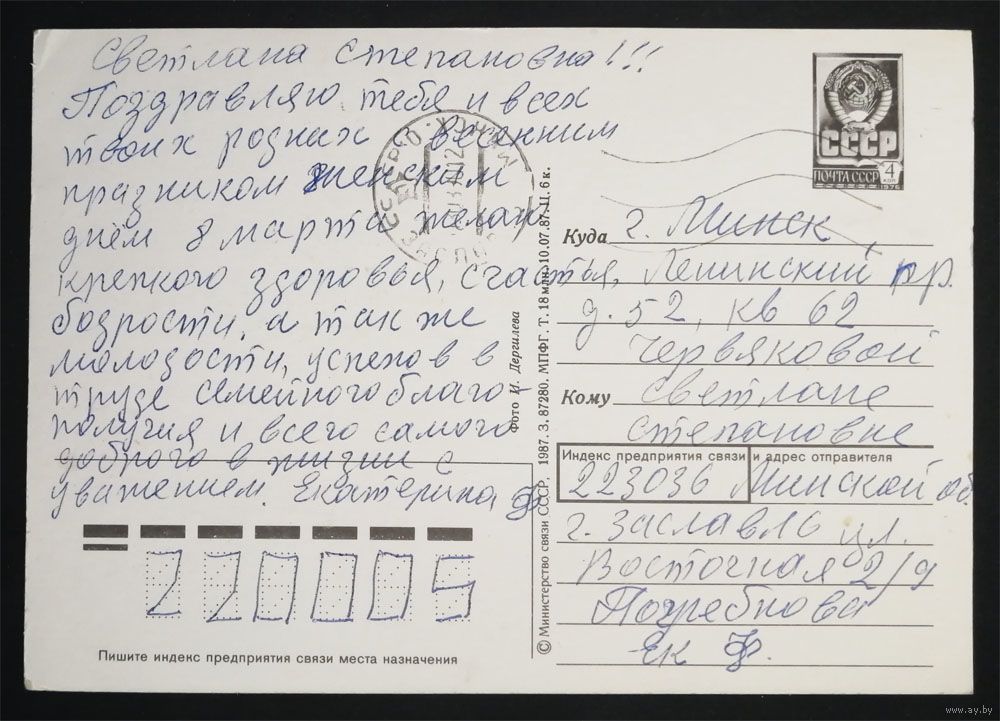 Светлана Степановна!!!
Поздравляю тебя и всех
твоих родных с весенним
празником Женским
днём 8 марта желаю
крепкого здоровья, счастья,
бодрости, а также
молодости, успехов в
труде семейного благо-
получия и всего самого
доброго в жизни с
уважением Екатерина Ф
Пишите индекс предприятия связи места назначения
220005
© Министерство связи СССР, 1987. З. 87280. МПФГ. Т. 18 млн. 10.07.87. Ц. 6 к.
Фото И. Дергилева
СССР
ПОЧТА СССР
4 КОП
1976
Куда г. Минск
Ленинский пр.
д. 52, кв 62
Червяковой
Кому Светлане
Степановне
Индекс предприятия связи и адрес отправителя
223036 Минской об
г. Заславль ул.
Восточная 2/9
Ек Ф.
www.ay.by